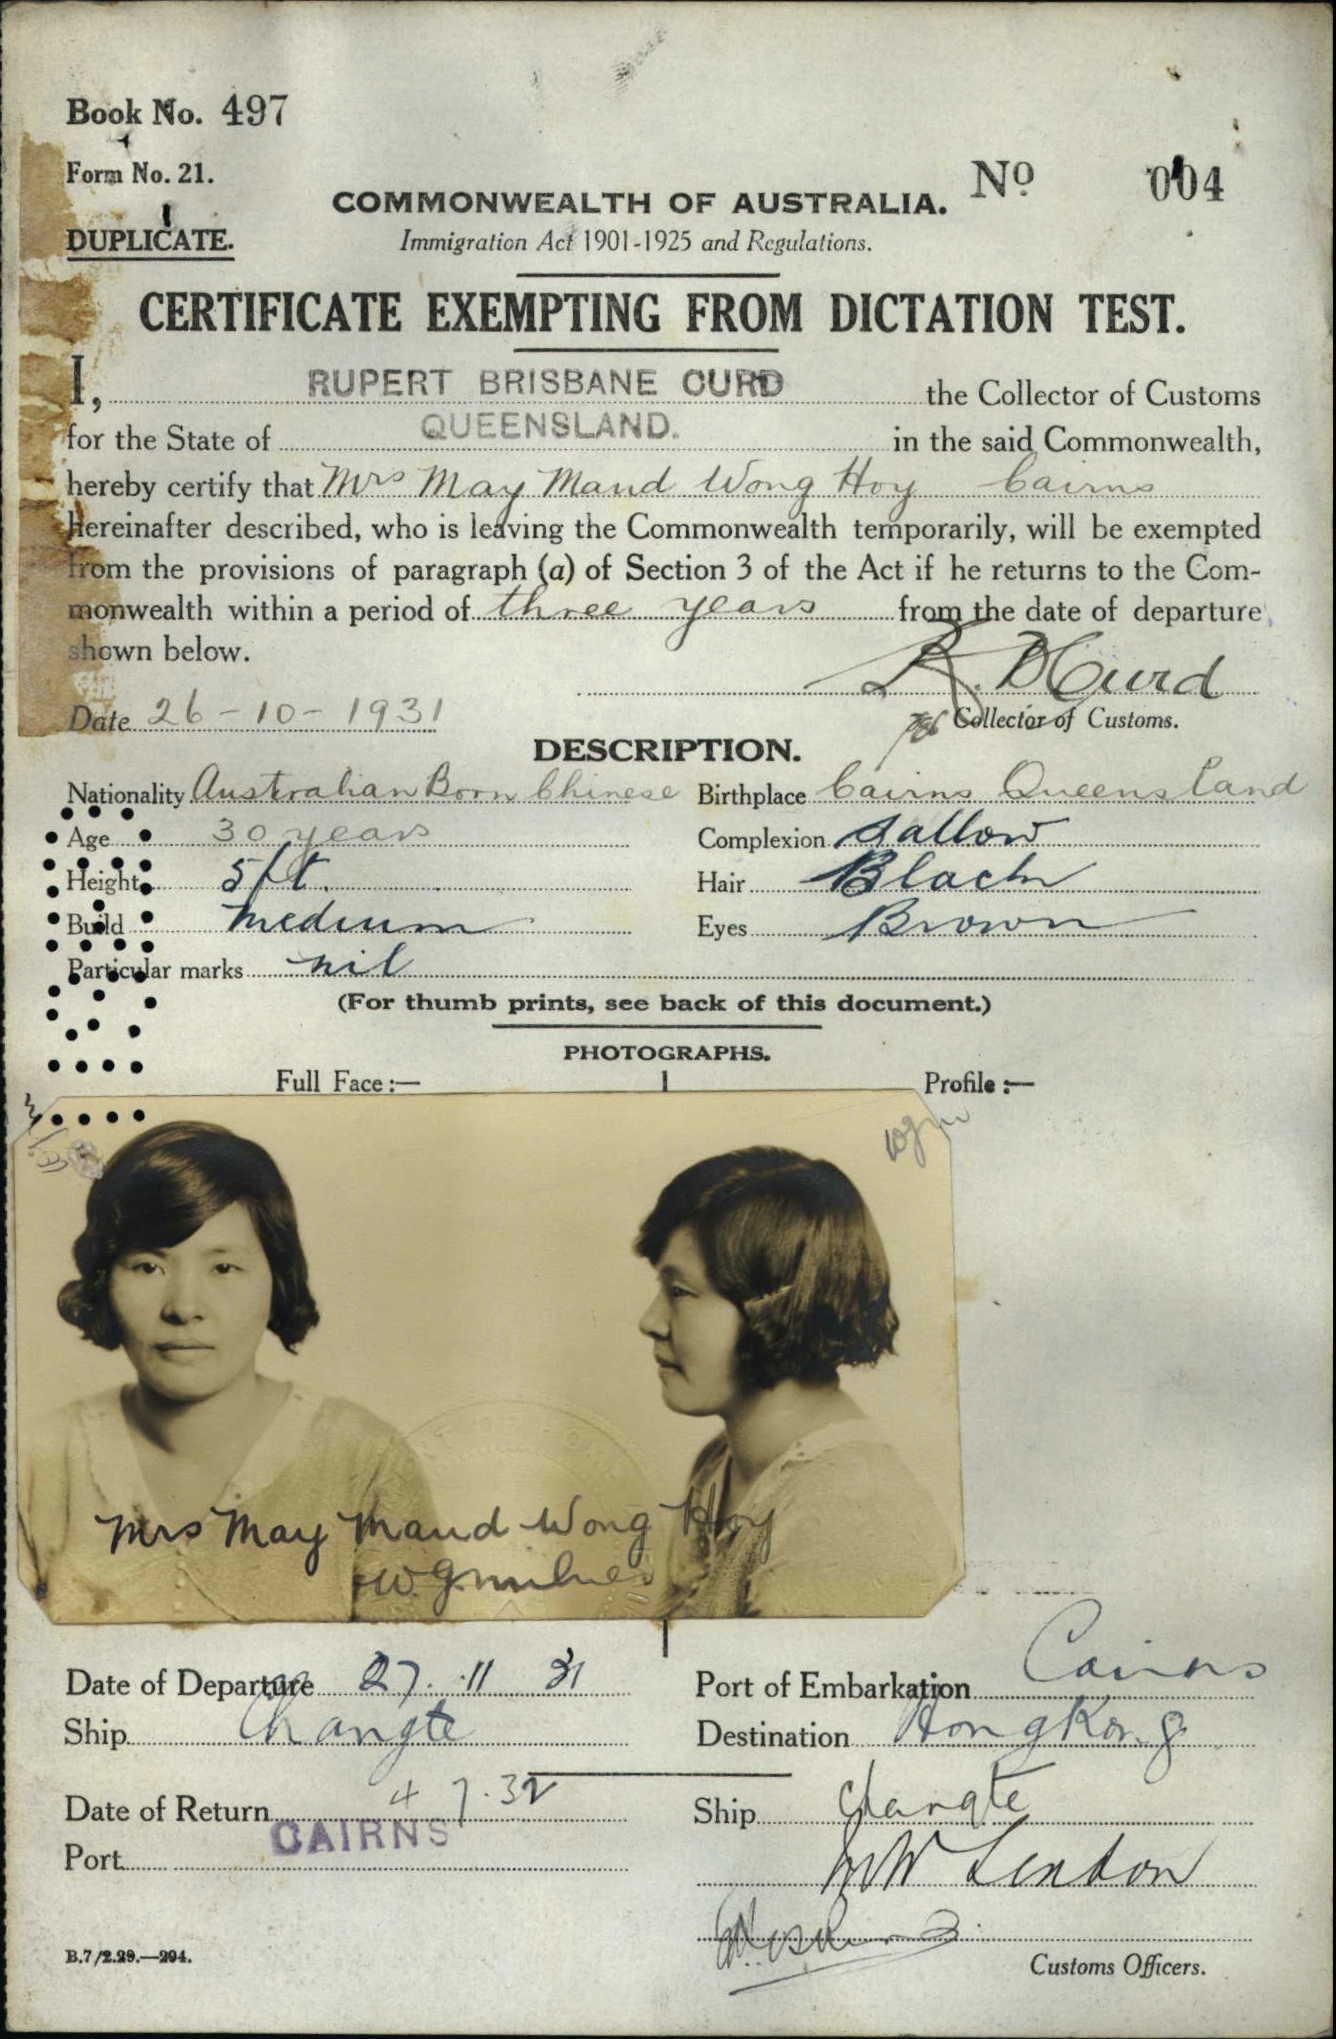 Book No. 497
Form No. 21.
DUPLICATE.
COMMONWEALTH OF AUSTRALIA.
No 004
Immigration Act 1901-1925 and Regulations.
CERTIFICATE EXEMPTING FROM DICTATION TEST.
I, RUPERT BRISBANE CURD the Collector of Customs
for the State of QUEENSLAND. in the said Commonwealth,
hereby certify that Mrs May Maud Wong Hoy Cairns
hereinafter described, who is leaving the Commonwealth temporarily, will be exempted
from the provisions of paragraph (a) of Section 3 of the Act if he returns to the Com-
monwealth within a period of three years from the date of departure
shown below.
R. B Curd
Date 26-10-1931
Collector of Customs.
DESCRIPTION.
Nationality Australian Born Chinese Birthplace Cairns Queensland
Age 30 years Complexion Sallow
Height 5ft. Hair Black
Build medium Eyes Brown
Particular marks nil
(For thumb prints, see back of this document.)
PHOTOGRAPHS.
Full Face:— Profile:—
wgm
Mrs May Maud Wong Hoy
W.G. Milne
Date of Departure 27. 11 31 Port of Embarkation Cairns
Ship Changte Destination Hong Kong
Date of Return 4 7.32 Ship Changte
Port CAIRNS
Customs Officers.
B.7/2.29.—294.